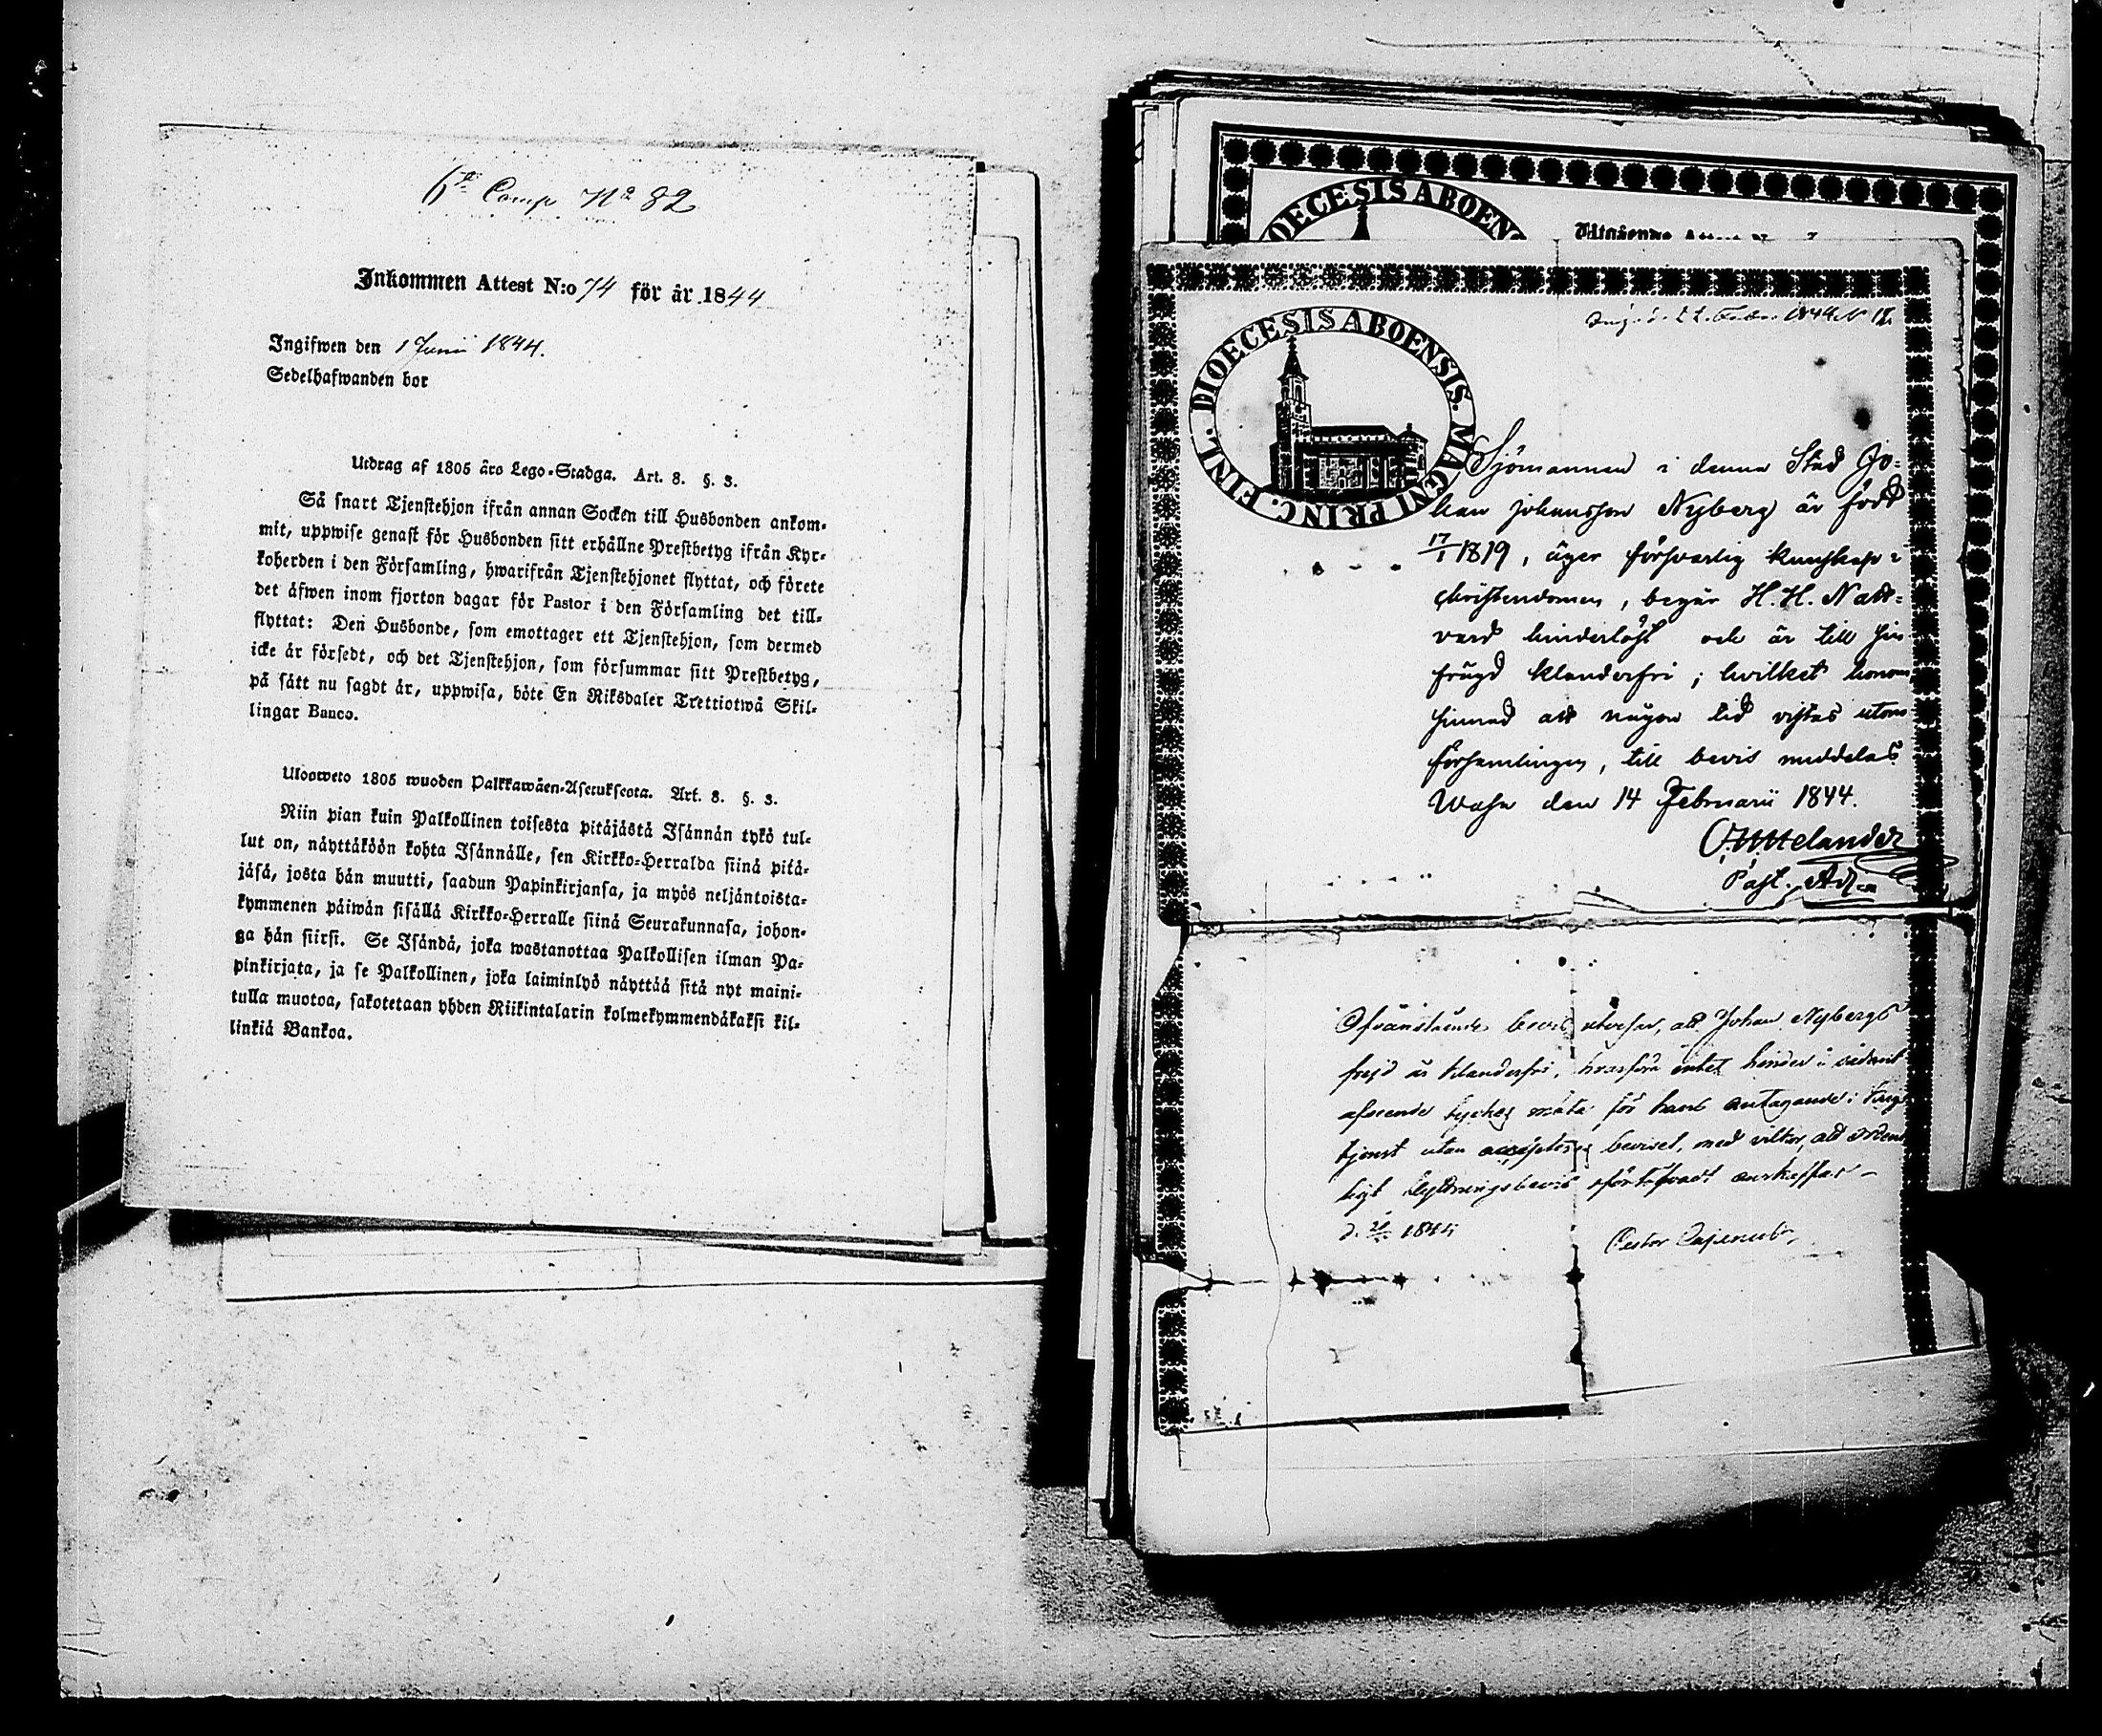 6te Comp No 82
Inkommen Attest N:o 74 för år 1844
Ingifwen den 1 Junii 1844.
Sedelhafwanden bor
Utdrag af 1805 års Lego-Stadga. Art. 8. §. 3.
Så snart Tjenstehjon ifrån annan Socken till Husbonden ankom-
mit, uppwise genast för Husbonden sitt erhållne Prestbetyg ifrån Kyr-
koherden i den Församling, hwarifrån Tjenstehjonet flyttat, och förete
det äfwen inom fjorton dagar för Pastor i den Församling det till-
flyttat: Den Husbonde, som emottager ett Tjenstehjon, som dermed
icke är försedt, och det Tjenstehjon, som försummar sitt Prestbetyg,
på sätt nu sagdt är, uppwisa, böte En Riksdaler Trettiotwå Skil-
lingar Banco.
Ulosweto 1805 wuoden Palkkawäen-Asetuksesta. Art. 8. §. 3.
Niin pian kuin Palkollinen toisesta pitäjästä Isännän tykö tul-
lut on, näyttäköön kohta Isännälle, sen Kirkko-Herralda siinä pitä-
jäsä, josta hän muutti, saadun Papinkirjansa, ja myös neljäntoista-
kymmenen päiwän sisällä Kirkko-Herralle siinä Seurakunnasa, johon-
ga hän siirsi. Se Isändä, joka wastanottaa Palkollisen ilman Pa-
pinkirjata, ja se Palkollinen, joka laiminlyö näyttää sitä nyt maini-
tulla muotoa, sakotetaan yhden Riikintalarin kolmekymmendäkaksi kil-
linkiä Bankoa.
DIOECESIS ABOEN
DIOECESIS ABOENSIS. MAGNI PRINC. FINL.
1844 N
Sjömannen i denna Stad Jo-
han Johansson Nyberg är född
17/1 1819, äger försvarlig kunskap i
christendomen, begår H. H. Natt-
vard hinderlöst och är till sin
frägd klanderfri; hvilket honom
sinnad att någon tid vistas utom
församlingen, till bevis meddelas
Wasa den 14 Februarii 1844.
Melander
Past. Adj.
Ofvanstående bevis utvisar, att Johan Nybergs
frejd är klanderfri, hvarföre intet hinder i sådant
afseende möta för hans antagande i
tjenst utan beviset, med vilkor, att orden-
ligt flyttningsbevis anskaffas
d. 1844
Pastor